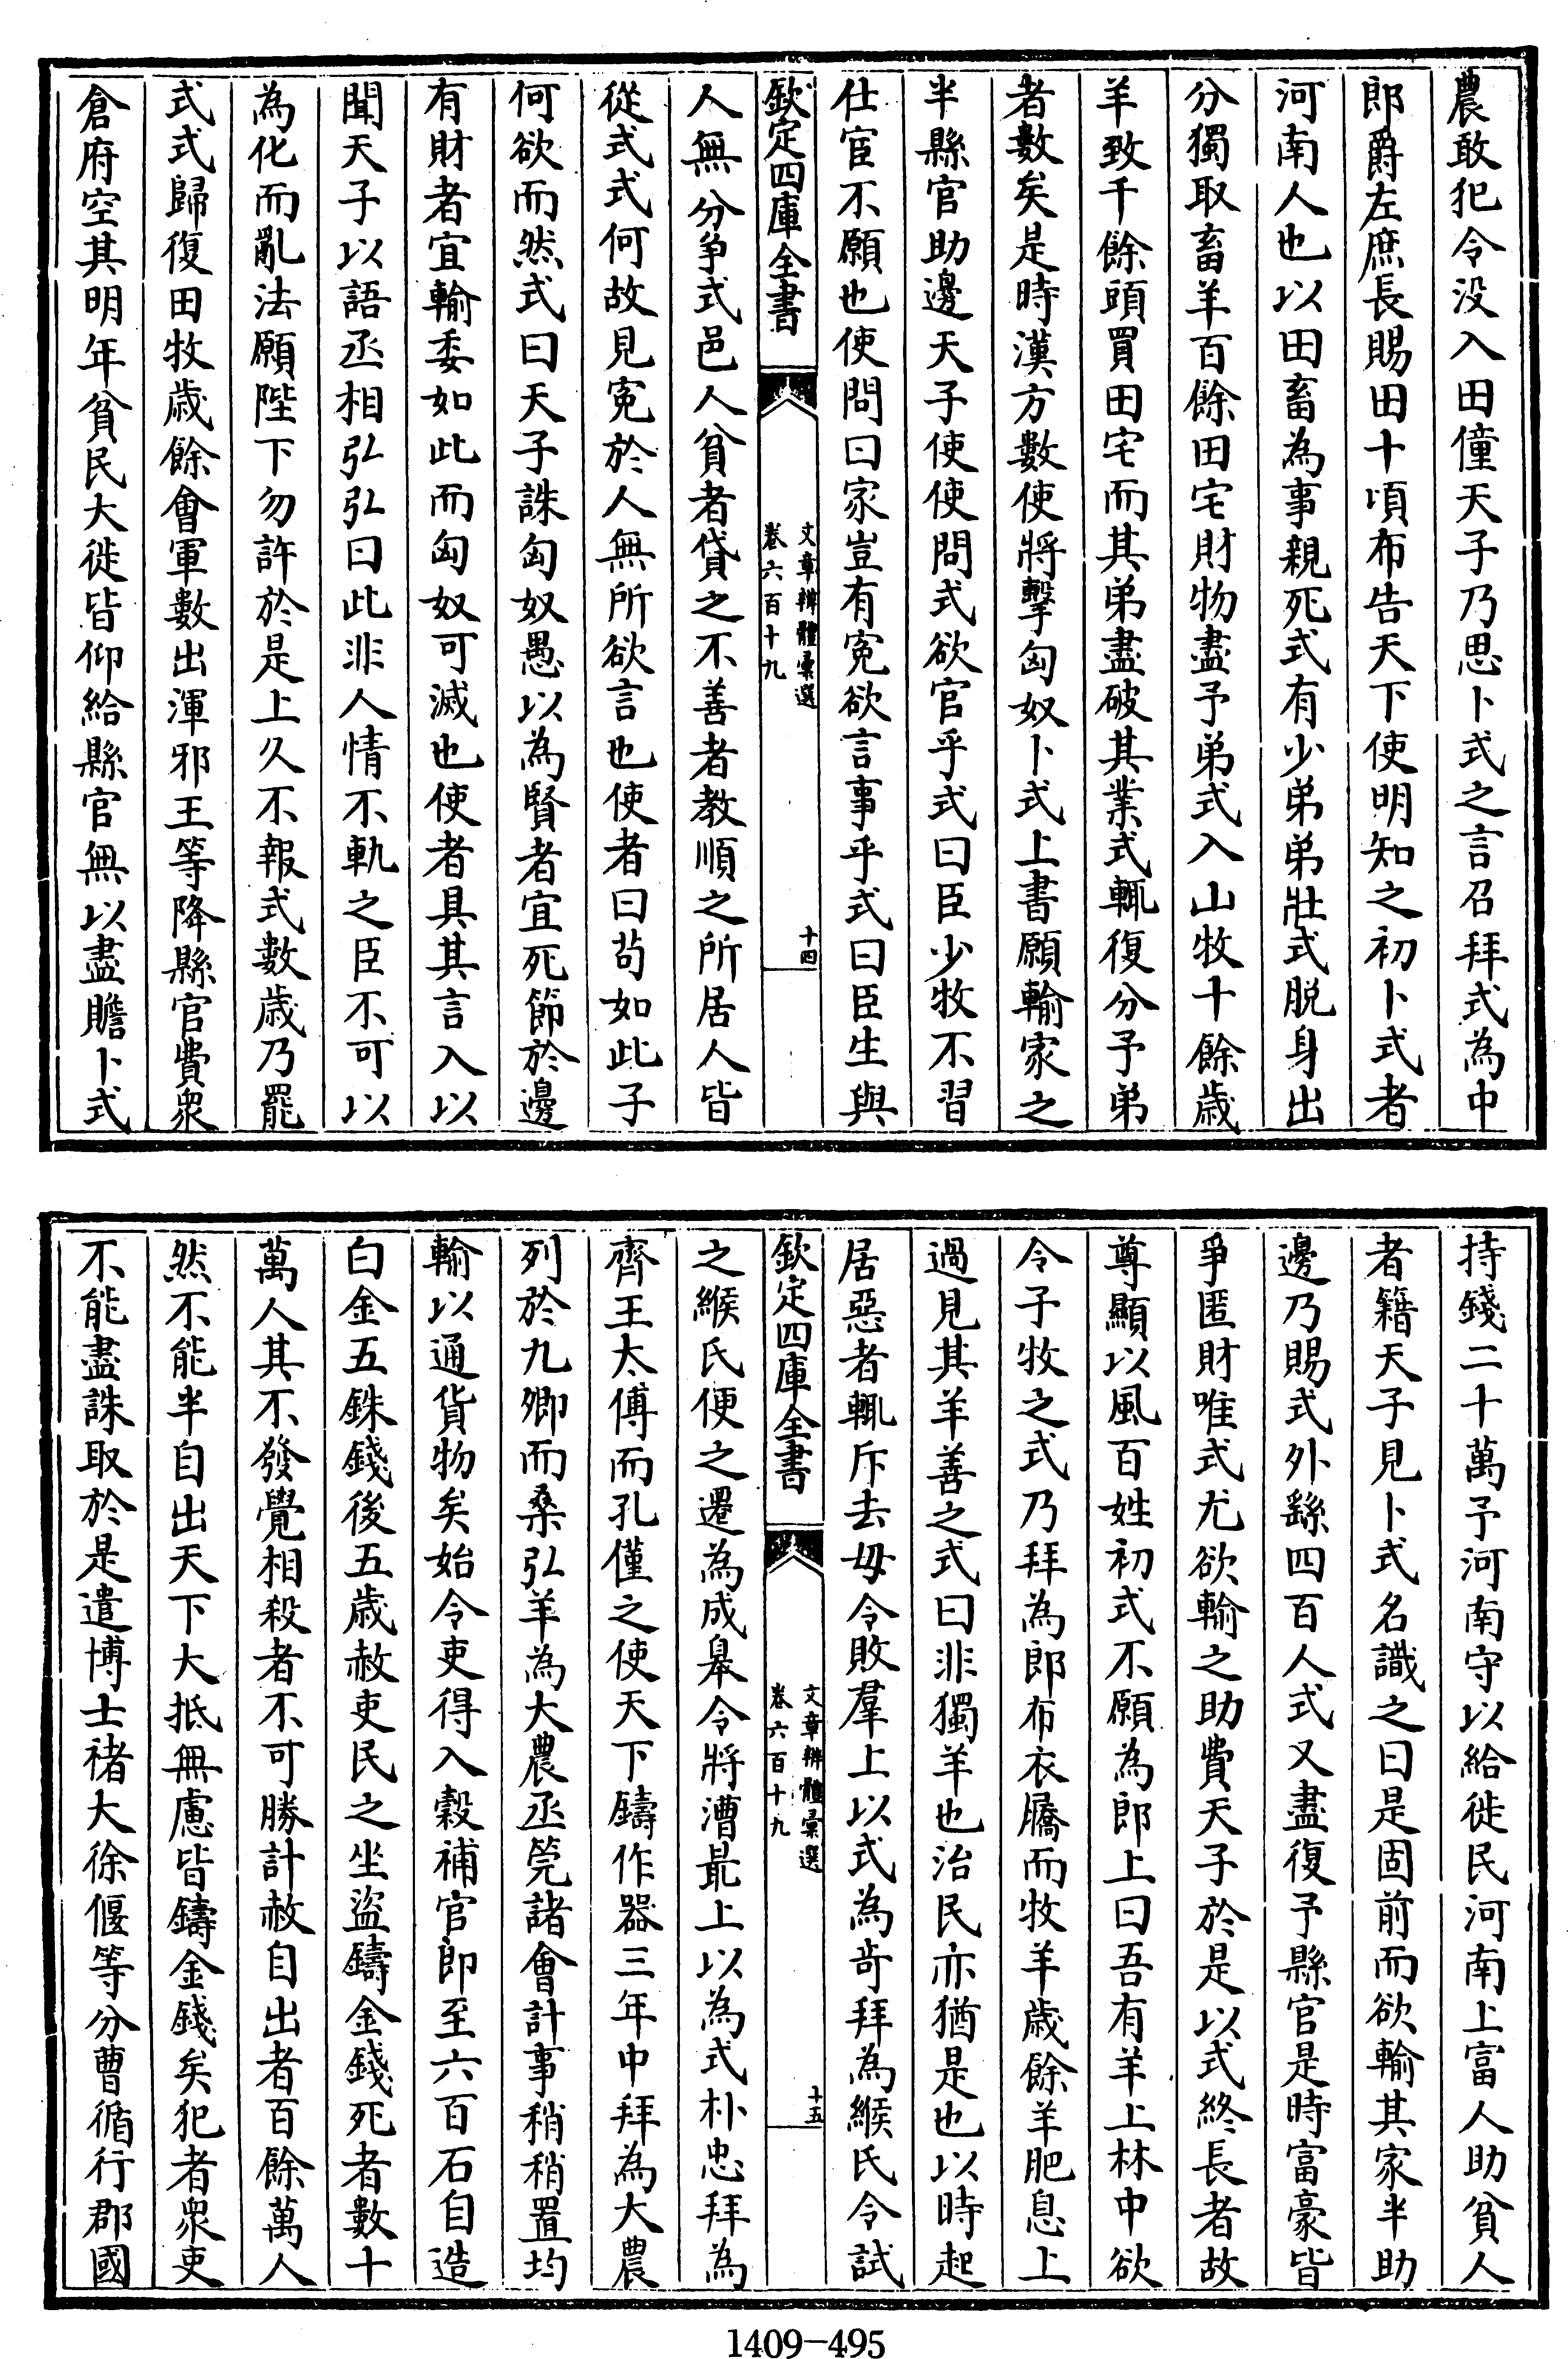 農敢犯令没入田僮天子乃思卜式之言召拜式為中
郎爵左庶長賜田十頃布告天下使明知之初卜式者
河南人也以田畜為事親死式有少弟弟壯式脱身出
分獨取畜羊百餘田宅財物盡予弟式入山牧十餘歲
羊致千餘頭買田宅而其弟盡破其業式輒復分予弟
者數矣是時漢方數使將擊匈奴卜式上書願輸家之
半縣官助邊天子使使問式欲官乎式曰臣少牧不習
仕宦不願也使問曰家豈有寃欲言事乎式曰臣生與
欽定四庫全書
文章辨體彙選
卷六百十九
十四
人無分爭式邑人貧者貸之不善者教順之所居人皆
從式式何故見寃於人無所欲言也使者曰苟如此子
何欲而然式曰天子誅匈奴愚以為賢者宜死節於邊
有財者宜輸委如此而匈奴可滅也使者具其言入以
聞天子以語丞相弘弘曰此非人情不軌之臣不可以
為化而亂法願陛下勿許於是上久不報式數歲乃罷
式式歸復田牧歲餘會軍數出渾邪王等降縣官費衆
倉府空其明年貧民大徙皆仰給縣官無以盡贍卜式
持錢二十萬予河南守以給徙民河南上富人助貧人
者籍天子見卜式名識之曰是固前而欲輸其家半助
邊乃賜式外繇四百人式又盡復予縣官是時富豪皆
爭匿財唯式尤欲輸之助費天子於是以式終長者故
尊顯以風百姓初式不願為郎上曰吾有羊上林中欲
令子牧之式乃拜為郎布衣屩而牧羊歲餘羊肥息上
過見其羊善之式曰非獨羊也治民亦猶是也以時起
居惡者輒斥去毋令敗羣上以式為奇拜為緱氏令試
欽定四庫全書
文章辨體彙選
卷六百十九
十五
之緱氏便之遷為成皋令將漕最上以為式朴忠拜為
齊王太傅而孔僅之使天下鑄作器三年中拜為大農
列於九卿而桑弘羊為大農丞筦諸會計事稍稍置均
輸以通貨物矣始令吏得入穀補官郎至六百石自造
白金五銖錢後五歲赦吏民之坐盜鑄金錢死者數十
萬人其不發覺相殺者不可勝計赦自出者百餘萬人
然不能半自出天下大抵無慮皆鑄金錢矣犯者衆吏
不能盡誅取於是遣博士褚大徐偃等分曹循行郡國
1409-495